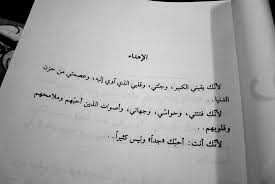 الإهداء
لأنّك يقيني الكبير، وجنّتي، وقلبي الذي آوي إليه، وعصمتي من حزن
الدنيا..
لأنّك فتنتي، وحواسّي، وجهاتي، وأصوات الذين أحبّهم وملامحهم
وقلوبهم..
لأنّك أنت: أحبّك «جداً» وليس كثيراً..